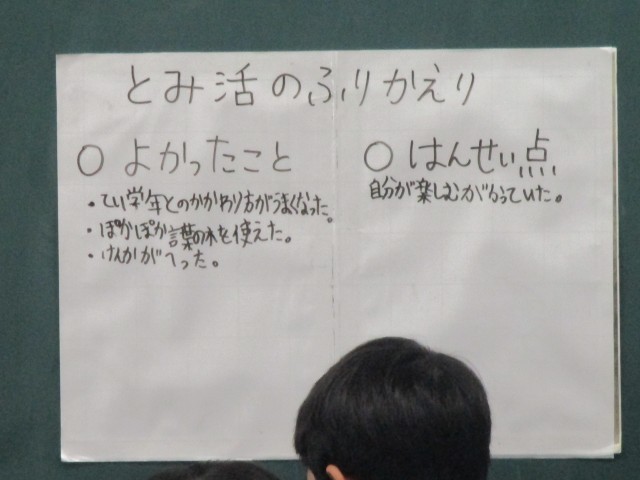 とみ活のふりかえり
○ よかったこと
・てい学年とのかかわり方がうまくなった。
・ぽかぽか言葉の木を使えた。
・けんかがへった。
○ はんせい点
自分が楽しむがわっていた。